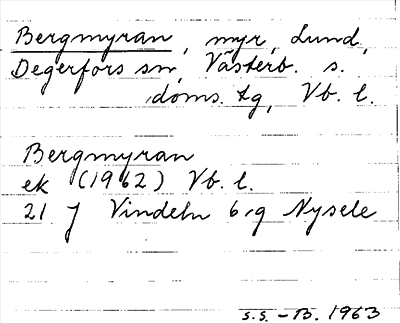 Bergmyran, myr, Lund,
Degerfors sn, Västerb. s.
doms. tg, Vb. l.
Bergmyran
ek (1962) Vb. l.
21 J Vindeln 6,9 Nysele
s.s. - B. 1963